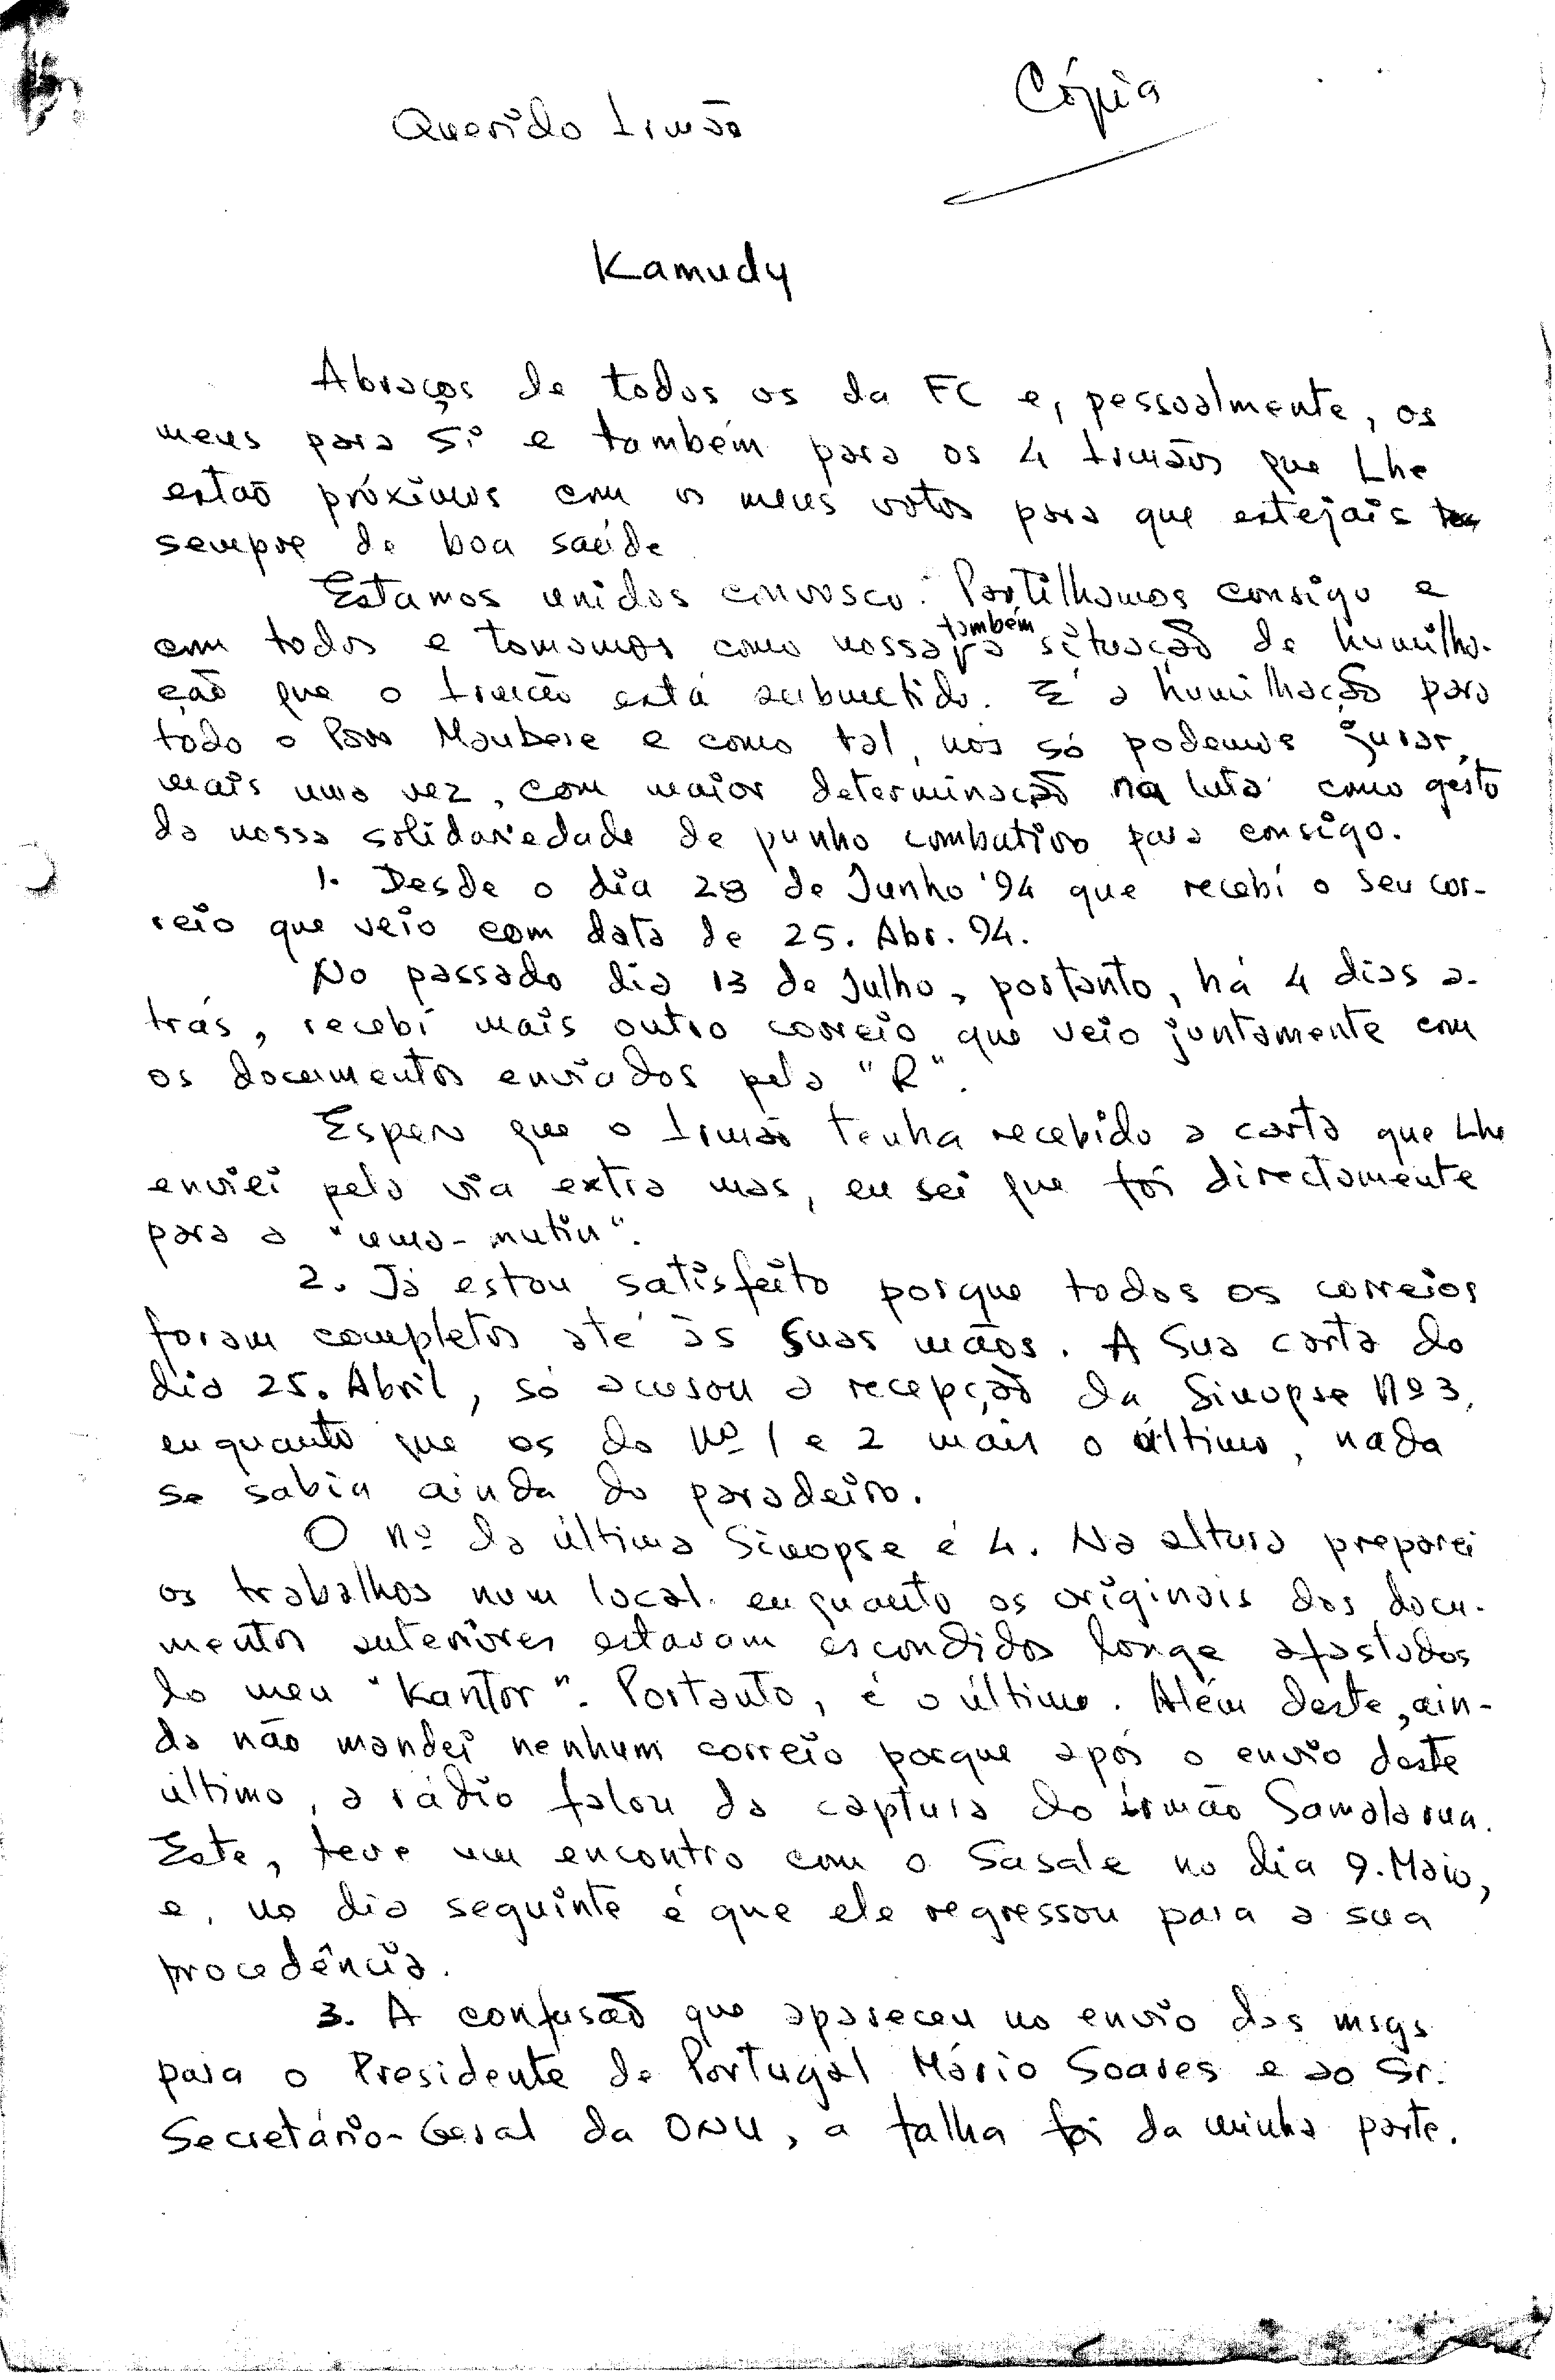 Cópia
Querido Irmão
Kamudy
Abraços de todos os da FC e, pessoalmente, os
meus para Si e também para os 4 Irmãos que Lhe
estão próximos com os meus votos para que estejais
sempre de boa saúde
Estamos unidos convosco. Partilhamos consigo e
com todos e tomamos como nossa também a situação de humilha-
ção que o Irmão está submetido. É a humilhação para
todo o Povo Maubere e como tal, nós só podemos jurar,
mais uma vez, com maior determinação na luta como gesto
da nossa solidariedade de punho combativo para consigo.
1. Desde o dia 28 de Junho '94 que recebi o seu cor-
reio que veio com data de 25. Abr. 94.
No passado dia 13 de Julho, portanto, há 4 dias a-
trás, recebi mais outro correio que veio juntamente com
os documentos enviados pela "R".
Espero que o Irmão tenha recebido a carta que Lhe
enviei pela via extra mas, eu sei que foi directamente
para a "uma-mutin".
2. Já estou satisfeito porque todos os correios
foram completos até às Suas mãos. A Sua carta do
dia 25. Abril, só acusou a recepção da Sinopse Nº 3,
enquanto que os do Nº 1 e 2 mais o último, nada
se sabia ainda do paradeiro.
O nº da última Sinopse é 4. Na altura preparei
os trabalhos num local enquanto os originais dos docu-
mentos anteriores estavam escondidos longe afastados
do meu "Kantor". Portanto, é o último. Além deste, ain-
da não mandei nenhum correio porque após o envio deste
último, a rádio falou da captura do irmão Samalarua.
Este, teve um encontro com o Sasale no dia 9. Maio,
e, no dia seguinte é que ele regressou para a sua
procedência.
3. A confusão que apareceu no envio das msgs
para o Presidente de Portugal Mário Soares e ao Sr.
Secretário-Geral da ONU, a falha foi da minha parte.